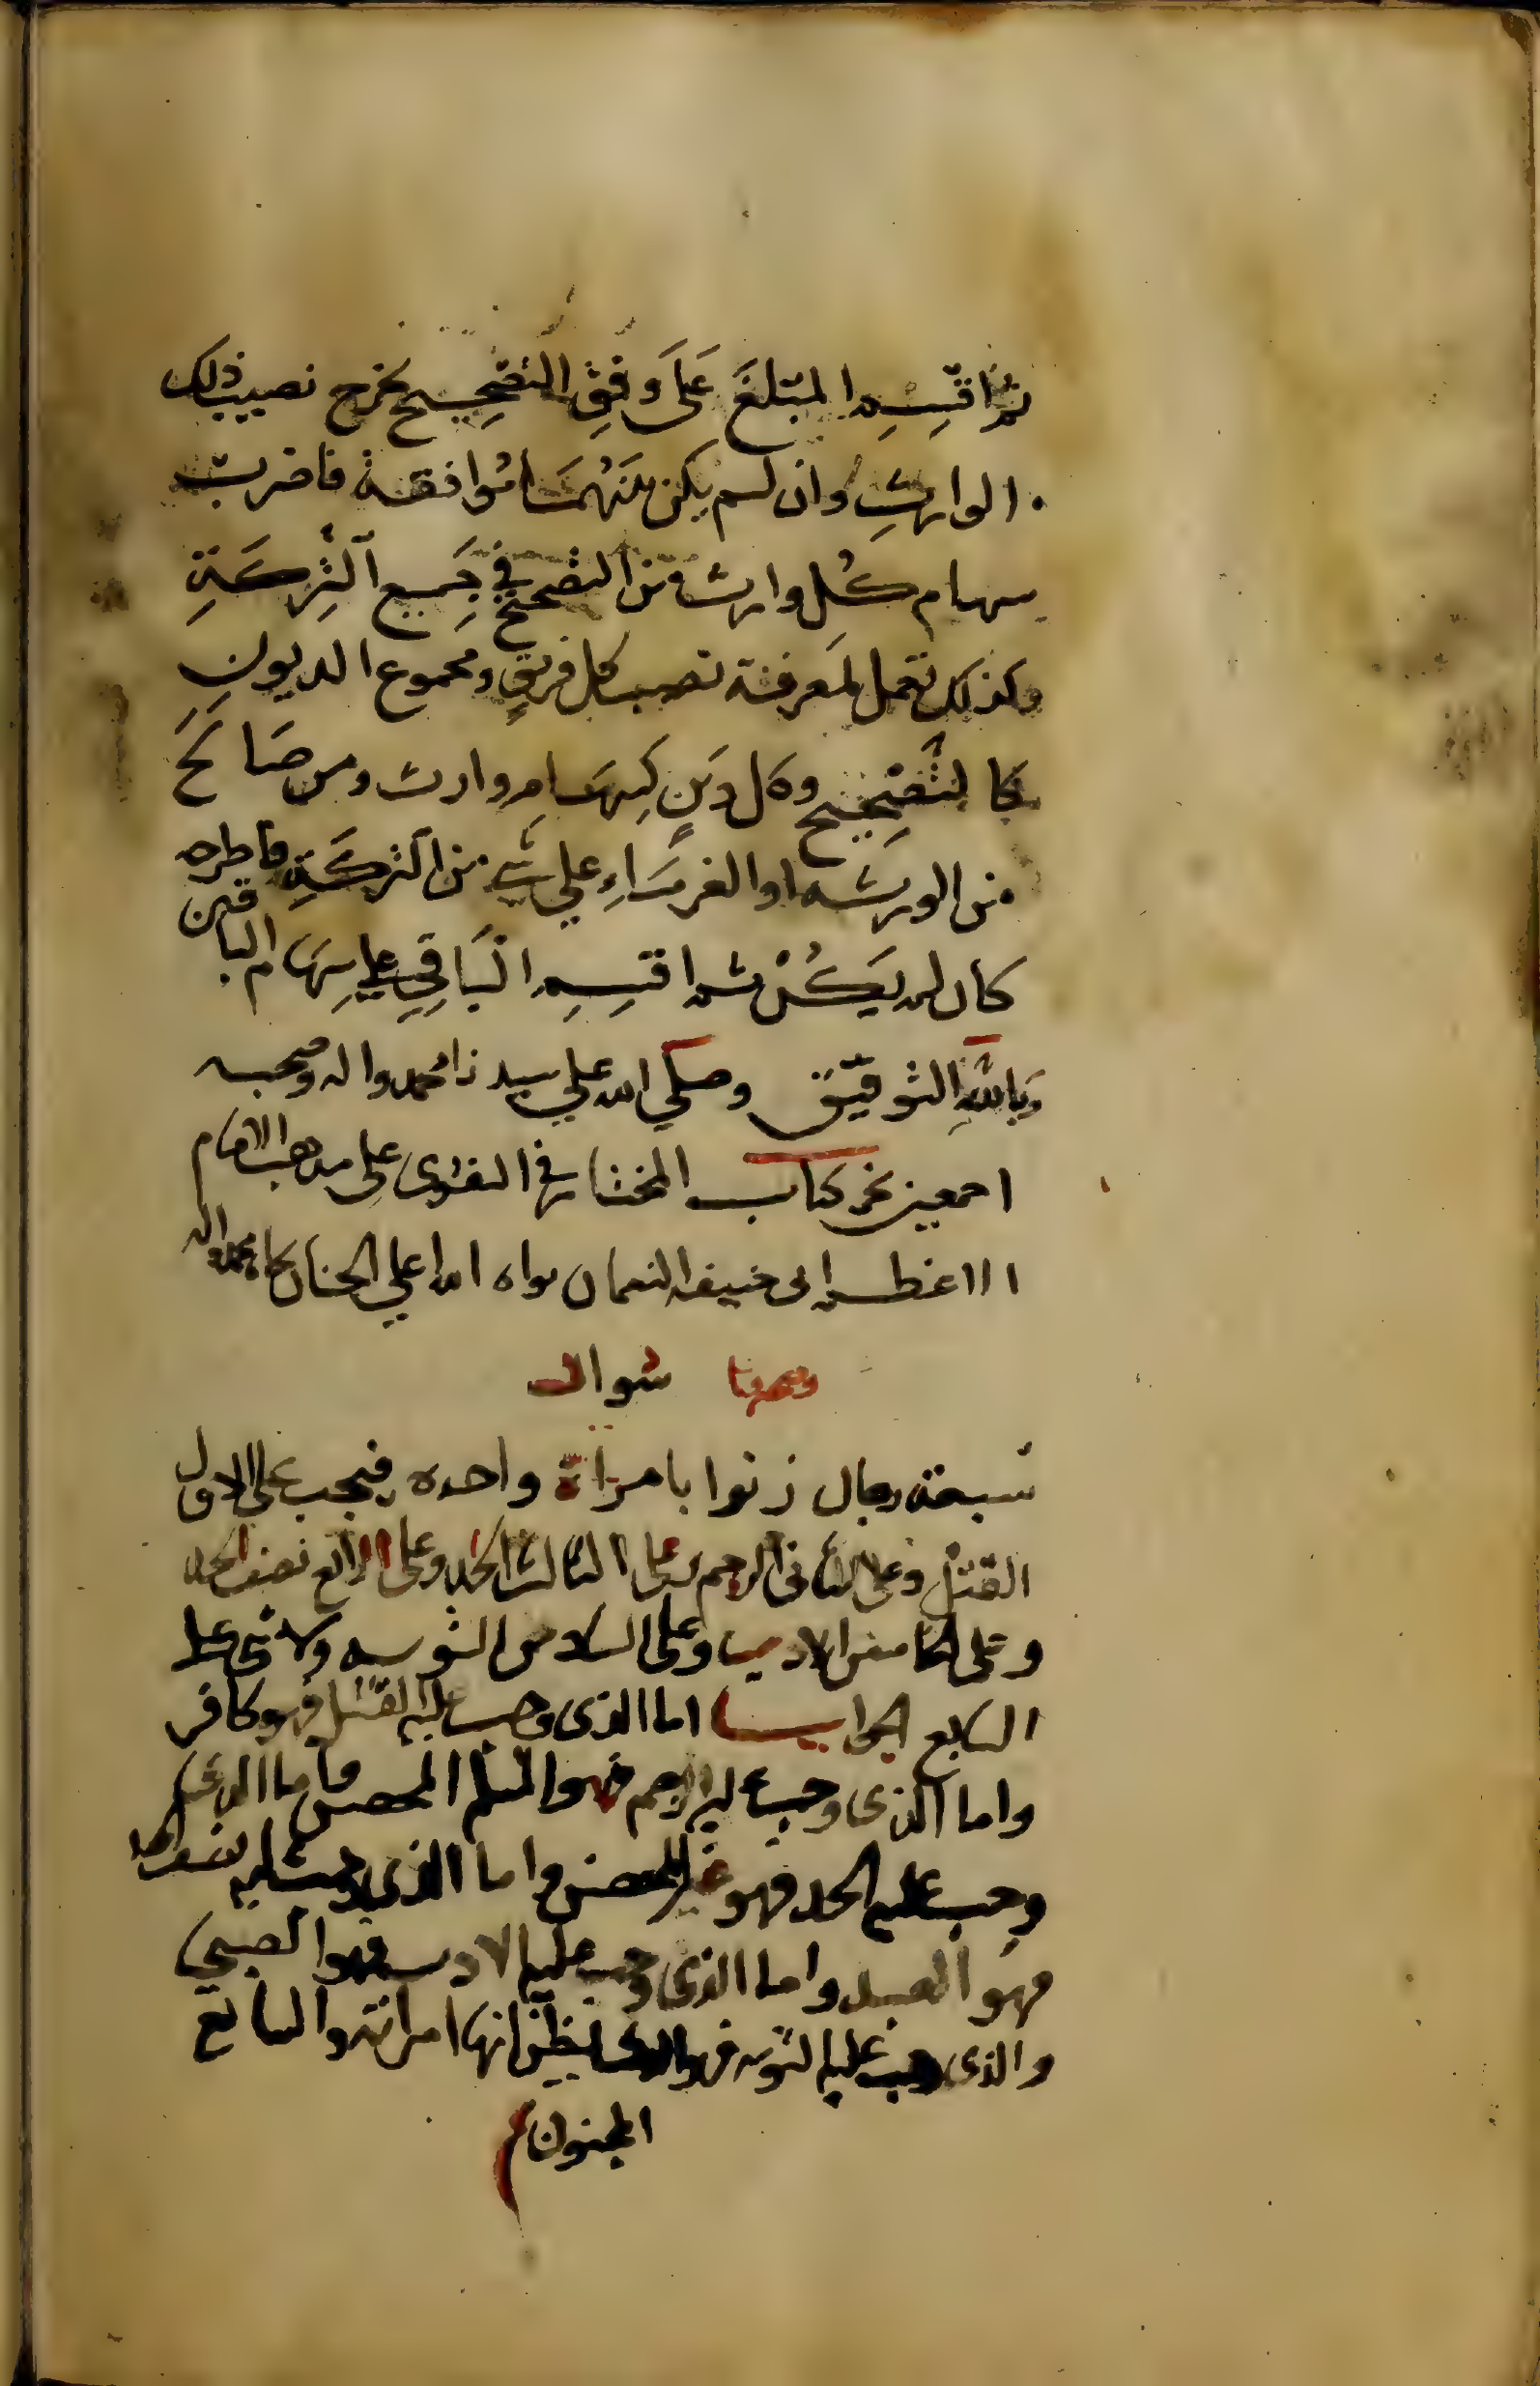 ثم اقسم المبلغ على وفق التصحيح يخرج نصيب ذلك
الوارث وان لم يكن بينهما موافقة فاضرب
سهام كل وارث من التصحيح في جميع التركة
وكذلك تعمل لمعرفة نصيب كل فريق ومجموع الديون
كالتصحيح وكل دين كسهام وارث ومن صالح
من الورثه او الغرماء على شي من التركة فاطرحه
كان لم يكن ثم اقسم الباقي على سهام الباقين
وبالله التوفيق وصلي الله علي سيدنا محمد واله وصحبه
اجمعين نجز كتاب المختار في الفتوى على مذهب الامام
الاعظم ابى حنيفه النعمان بواه الله اعلي الجنان بجاه محمد واله
وههنا سوال
سبعة رجال زنوا بامراة واحده فيجب على الاول
القتل وعلى الثانى الرجم وعلى الثالث الحد وعلى الرابع نصف الحد
وعلى الخامس الادب وعلى السادس التوبه ولا شى على
السابع الجواب اما الذى وجب عليه القتل فهو كافر
واما الذى وجب عليه الرجم فهو المسلم المحصن واما الذى
وجب عليه الحد فهو غير المحصن واما الذى وجب عليه نصف الحد
فهو العبد واما الذى وجب عليه الادب فهو الصبي
والذى وجب عليه التوبه فهو الذى يظن انها امراته والسابع
المجنون